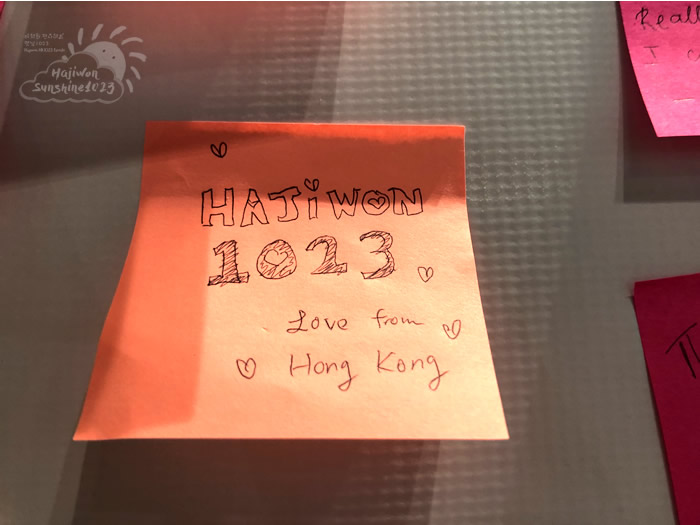 Hajiwon
Sunshine1023
HAJiWON
1023
Love from
Hong Kong
Reall
I